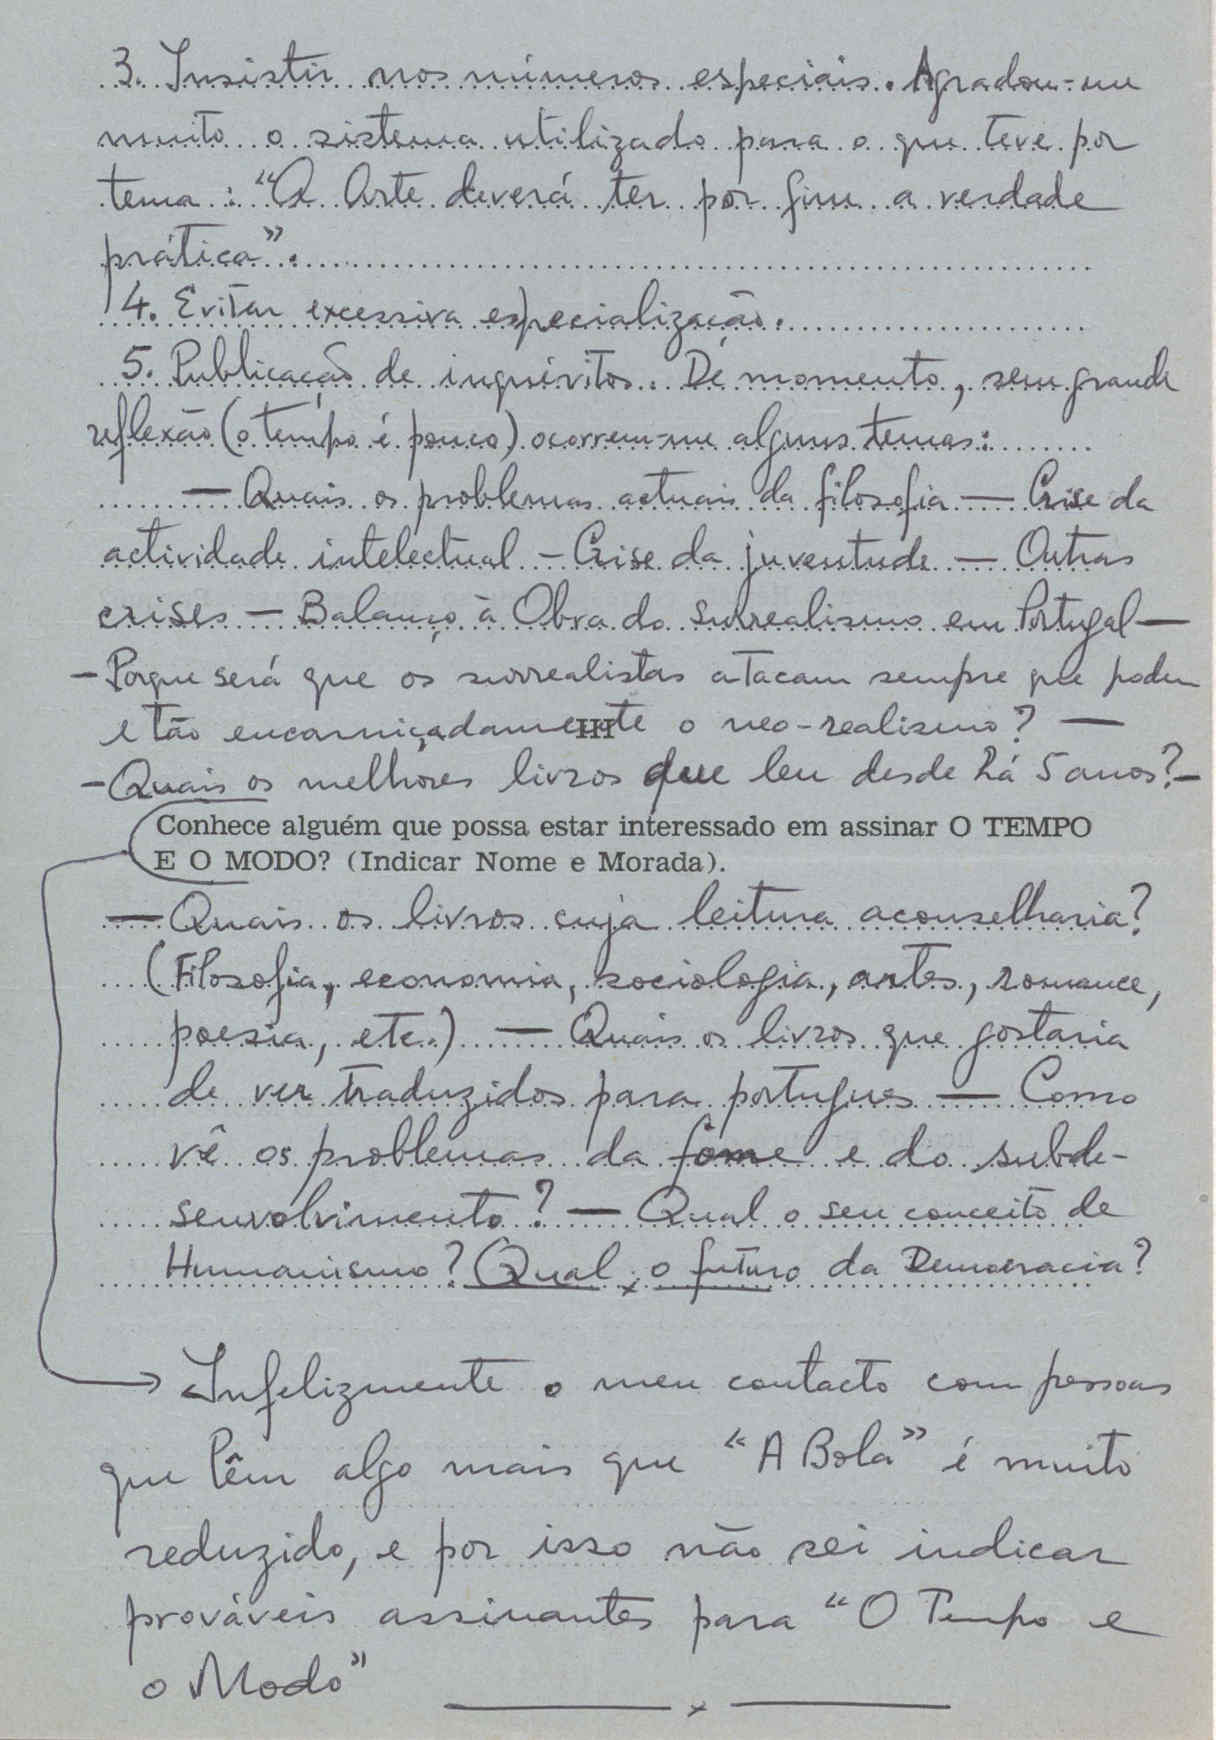 3. Insistir nos números especiais. Agradou-me
muito o sistema utilizado para o que teve por
tema: "A Arte deverá ter por fim a verdade
prática".
4. Evitar excessiva especialização.
5. Publicação de inquéritos. De momento, sem grande
reflexão (o tempo é pouco) ocorrem-me alguns temas:
— Quais os problemas actuais da filosofia — Crise da
actividade intelectual — Crise da juventude — Outras
crises — Balanço à Obra do Surrealismo em Portugal —
— Porque será que os surrealistas atacam sempre que podem
e tão encarniçadamente o neo-realismo? —
III
— Quais os melhores livros que leu desde há 5 anos? —
Conhece alguém que possa estar interessado em assinar O TEMPO
E O MODO? (Indicar Nome e Morada).
— Quais os livros cuja leitura aconselharia?
(Filosofia, economia, sociologia, artes, romance,
poesia, etc.) — Quais os livros que gostaria
de ver traduzidos para portugues — Como
vê os problemas da fome e do subde-
senvolvimento? — Qual o seu conceito de
Humanismo? Qual o futuro da Democracia?
Infelizmente o meu contacto com pessoas
que lêm algo mais que "A Bola" é muito
reduzido, e por isso não sei indicar
prováveis assinantes para "O Tempo e
o Modo"